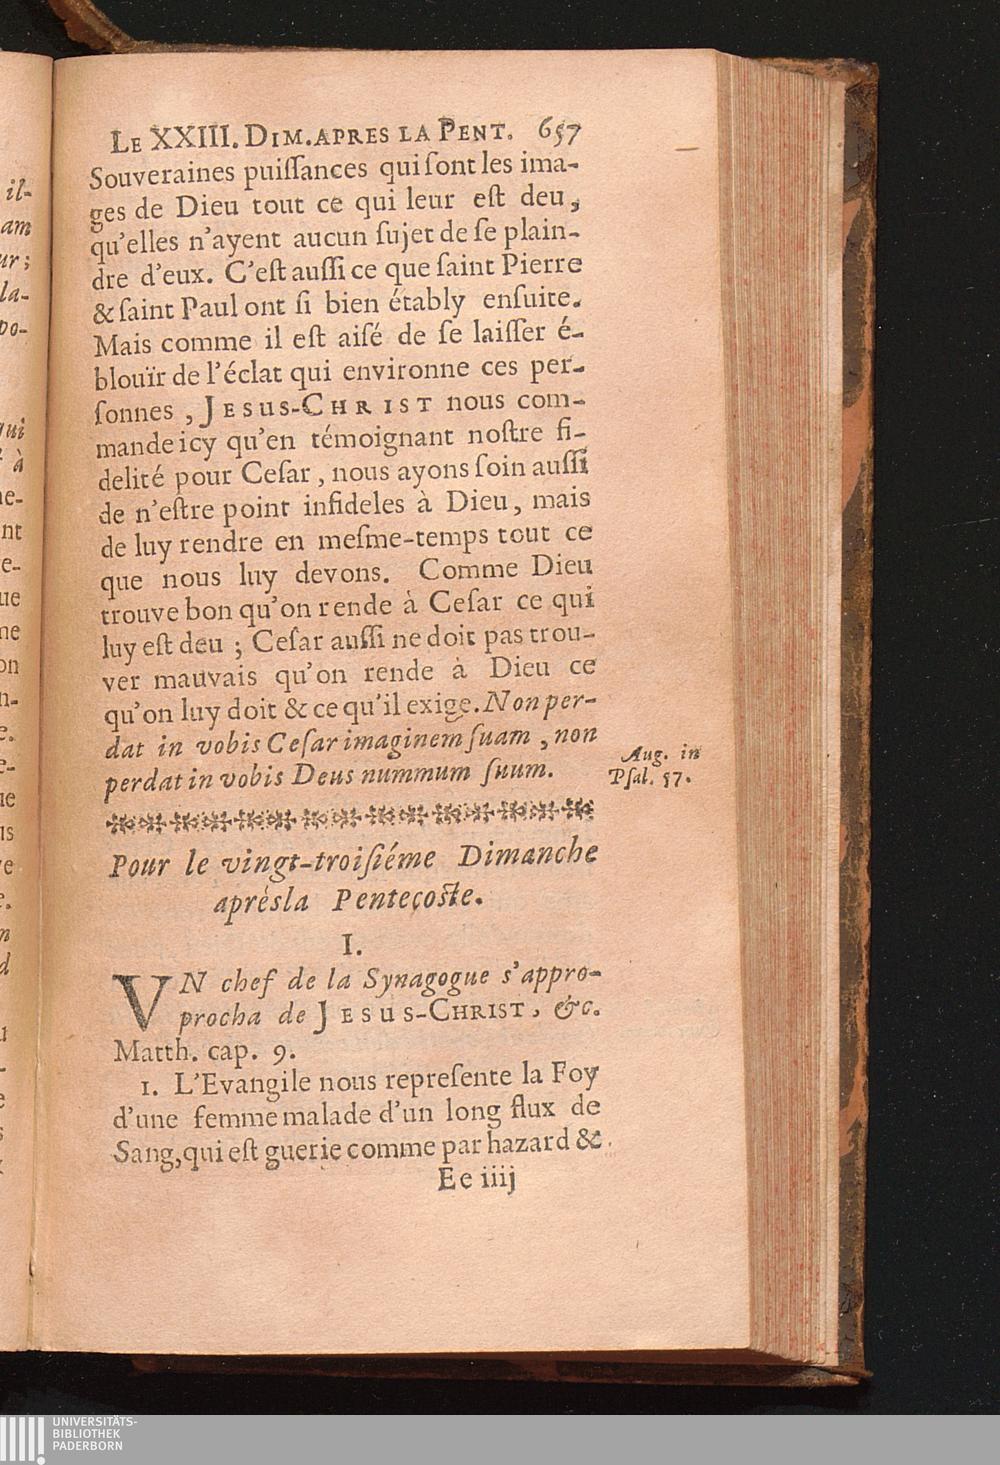 LE XXIII. DIM. APRES LA PENT. 657
Souveraines puiſſances qui ſont les ima-
ges de Dieu tout ce qui leur eſt deu,
qu'elles n'ayent aucun ſujet de ſe plain-
dre d'eux. C'eſt auſſi ce que ſaint Pierre
& ſaint Paul ont ſi bien étably enſuite.
Mais comme il eſt aiſé de ſe laiſſer é-
blouïr de l'éclat qui environne ces per-
ſonnes, JESUS-CHRIST nous com-
mande icy qu'en témoignant noſtre fi-
delité pour Ceſar, nous ayons ſoin auſſi
de n'eſtre point infideles à Dieu, mais
de luy rendre en meſme-temps tout ce
que nous luy devons. Comme Dieu
trouve bon qu'on rende à Ceſar ce qui
luy eſt deu ; Ceſar auſſi ne doit pas trou-
ver mauvais qu'on rende à Dieu ce
qu'on luy doit & ce qu'il exige. Non per-
dat in vobis Ceſar imaginem ſuam, non
perdat in vobis Deus nummum ſuum.
Aug. in
Pſal. 57.
Pour le vingt-troiſiéme Dimanche
aprèsla Pentecoſte.
I.
VN chef de la Synagogue s'appro-
procha de JESUS-CHRIST, &c.
Matth. cap. 9.
1. L'Evangile nous repreſente la Foy
d'une femme malade d'un long flux de
Sang, qui eſt guerie comme par hazard &
Ee iiij
il-
am
ur ;
la-
po-
qui
à
ne-
nt
e-
ue
ne
on
n-
e.
e-
ue
us
ve
e.
n
d
UNIVERSITÄTS-
BIBLIOTHEK
PADERBORN